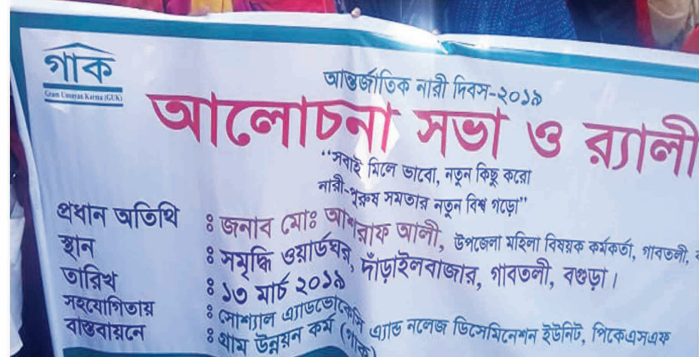 গাক
Gram Unnayan Karma (GUK)
আন্তর্জাতিক নারী দিবস-২০১৯
আলোচনা সভা ও র‍্যালী
“সবাই মিলে ভাবো, নতুন কিছু করো
নারী-পুরুষ সমতার নতুন বিশ্ব গড়ো”
প্রধান অতিথি ঃ জনাব মোঃ আশরাফ আলী, উপজেলা মহিলা বিষয়ক কর্মকর্তা, গাবতলী,
স্থান ঃ সমৃদ্ধি ওয়ার্ডঘর, দাঁড়াইলবাজার, গাবতলী, বগুড়া।
তারিখ ঃ ১৩ মার্চ ২০১৯
সহযোগিতায় ঃ সোশ্যাল এ্যাডভোকেসি এ্যান্ড নলেজ ডিসেমিনেশন ইউনিট, পিকেএসএফ
বাস্তবায়নে ঃ গ্রাম উন্নয়ন কর্ম (গাক)